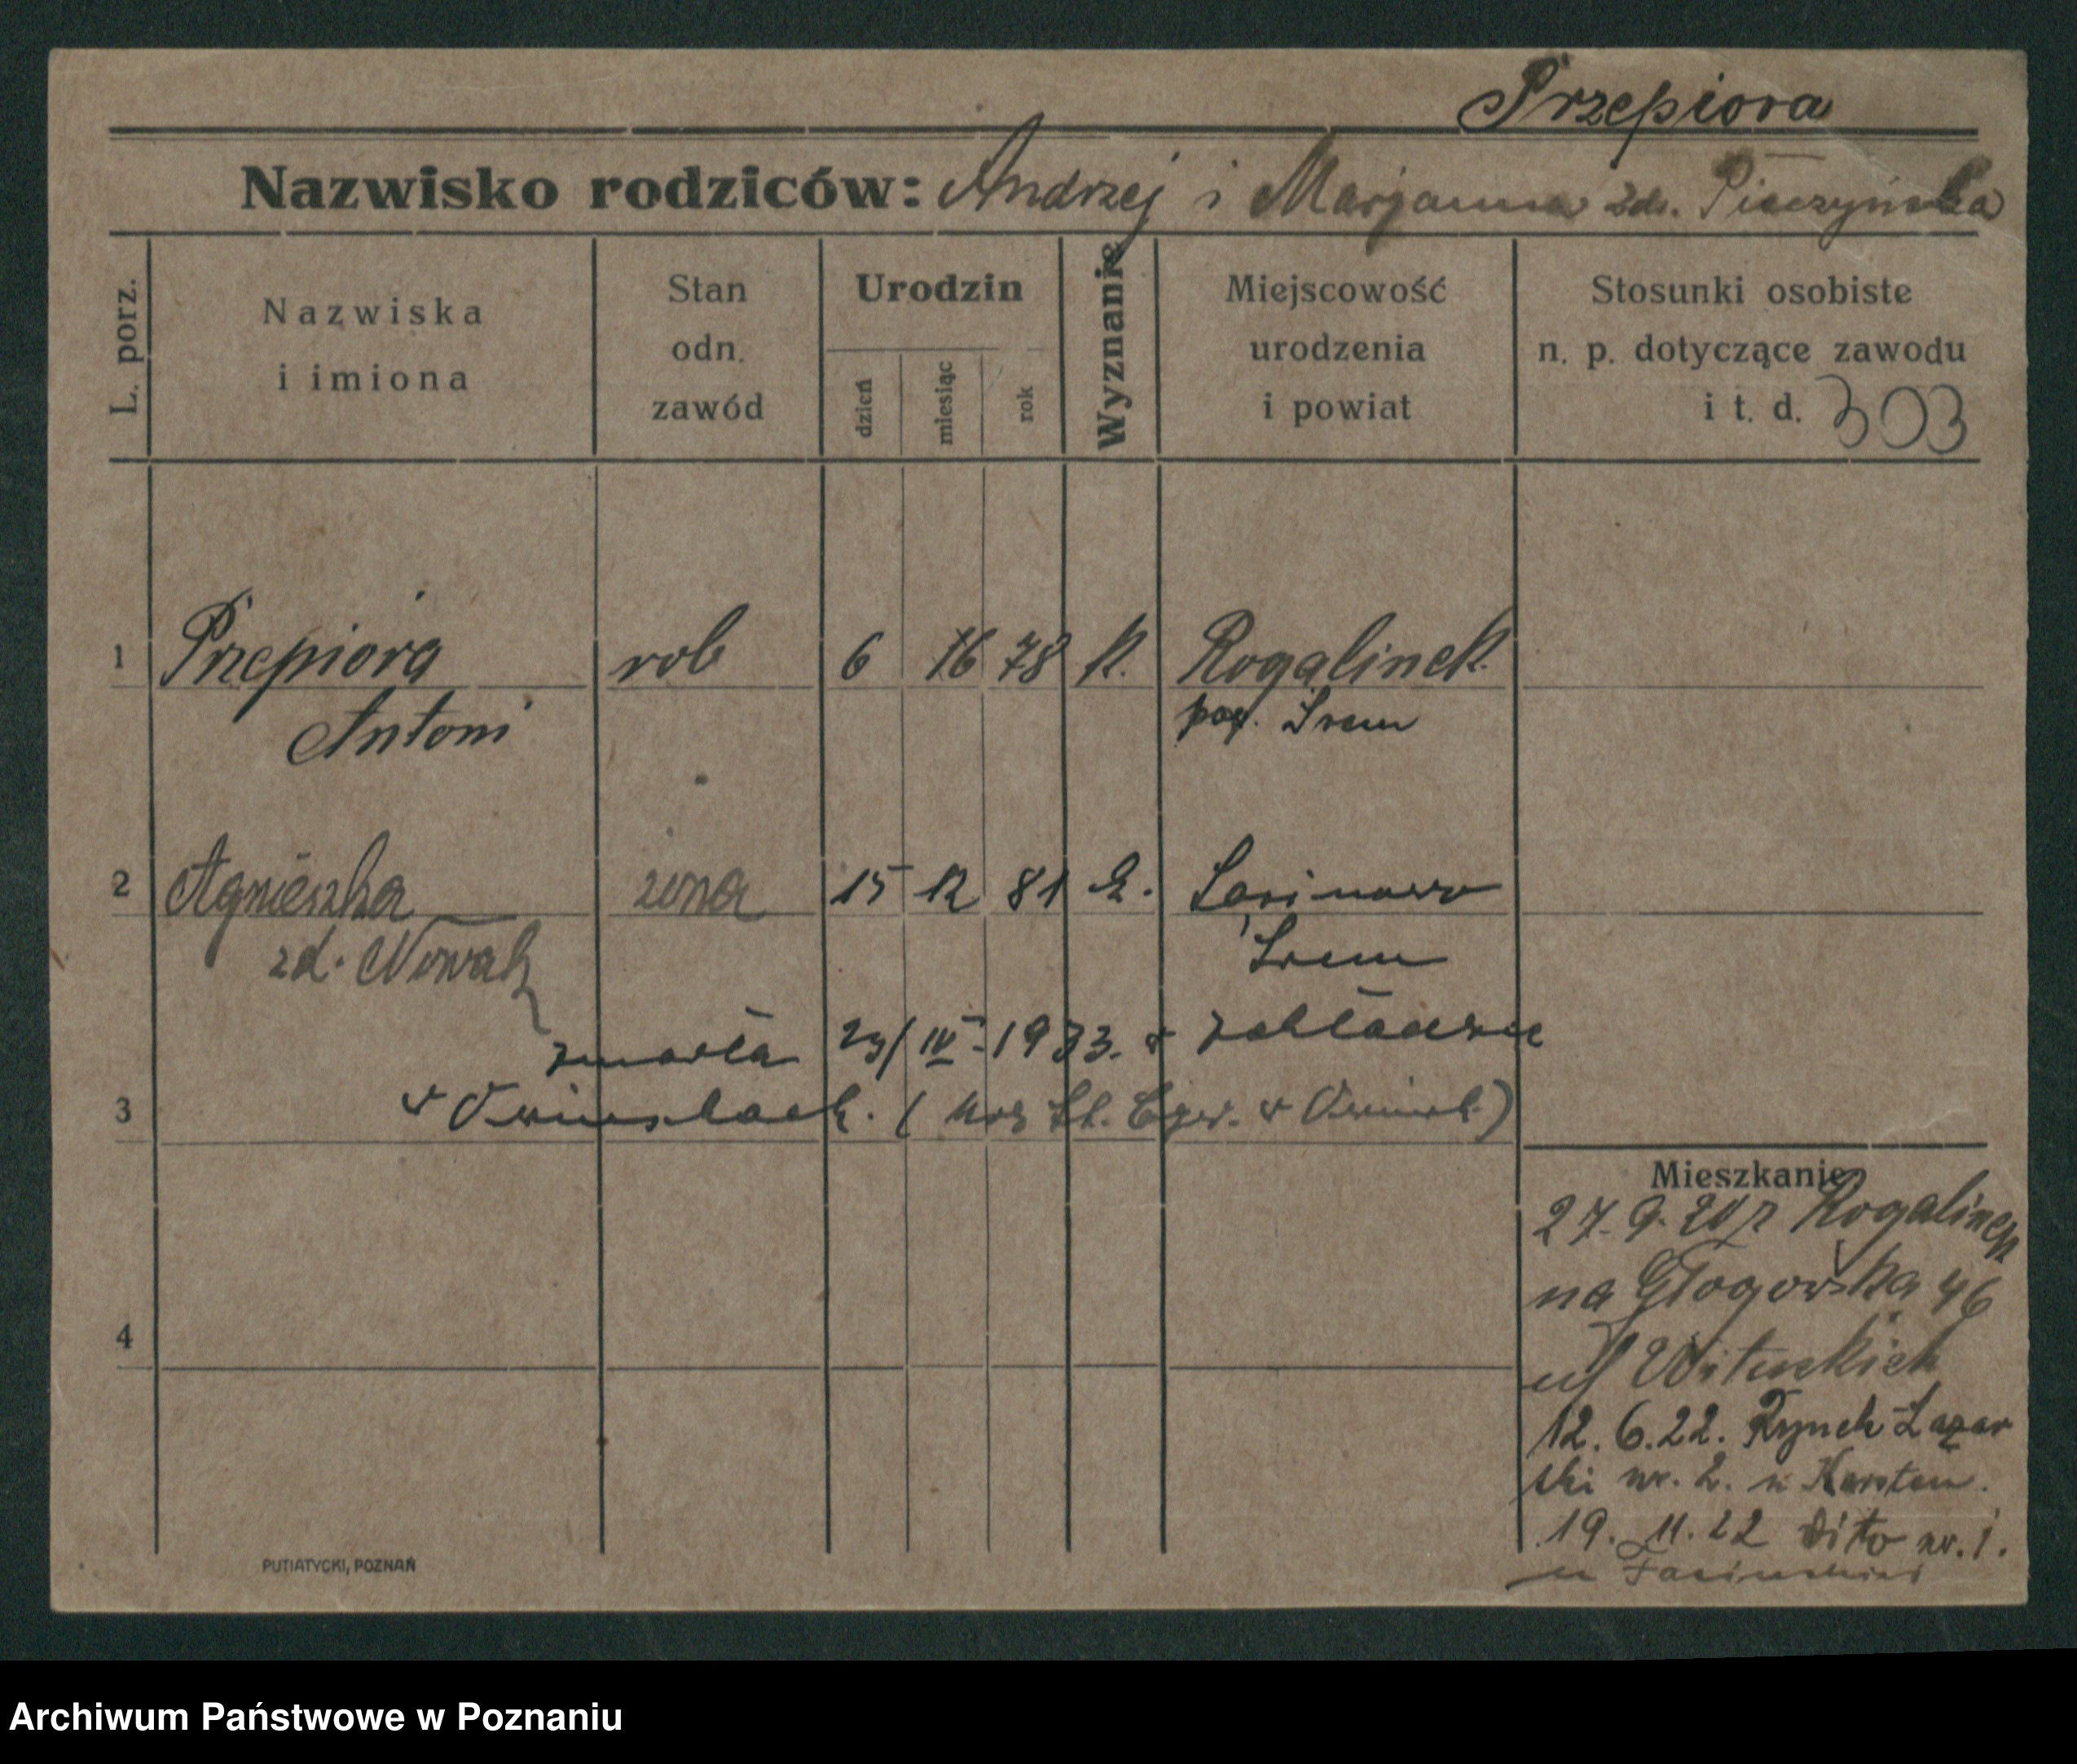 Przepiora
Nazwisko rodziców: Andrzej i Marjanna zd. Pieczyńska
L. porz.
Nazwiska
i imiona
Stan
odn.
zawód
Urodzin
dzień
miesiąc
rok
Wyznanie
Miejscowość
urodzenia
i powiat
Stosunki osobiste
n. p. dotyczące zawodu
i t. d. 303
1 Przepiora rob 6 78 k. Rogalinek
Antoni pow. Śrem
2 Agnieszka żona 15 12 81 k.
zd. Nowak Śrem
zmarła 29/IV 1933. w zakładzie
3 w Owinskach. (
4
Mieszkanie
27.9.20 z Rogalinek
na Głogowska 46
12.6.22. Rynek Łazar
ski nr. 2. u Karsten.
19.11.22 dito nr. 1.
u
PUTIATYCKI, POZNAŃ
Archiwum Państwowe w Poznaniu